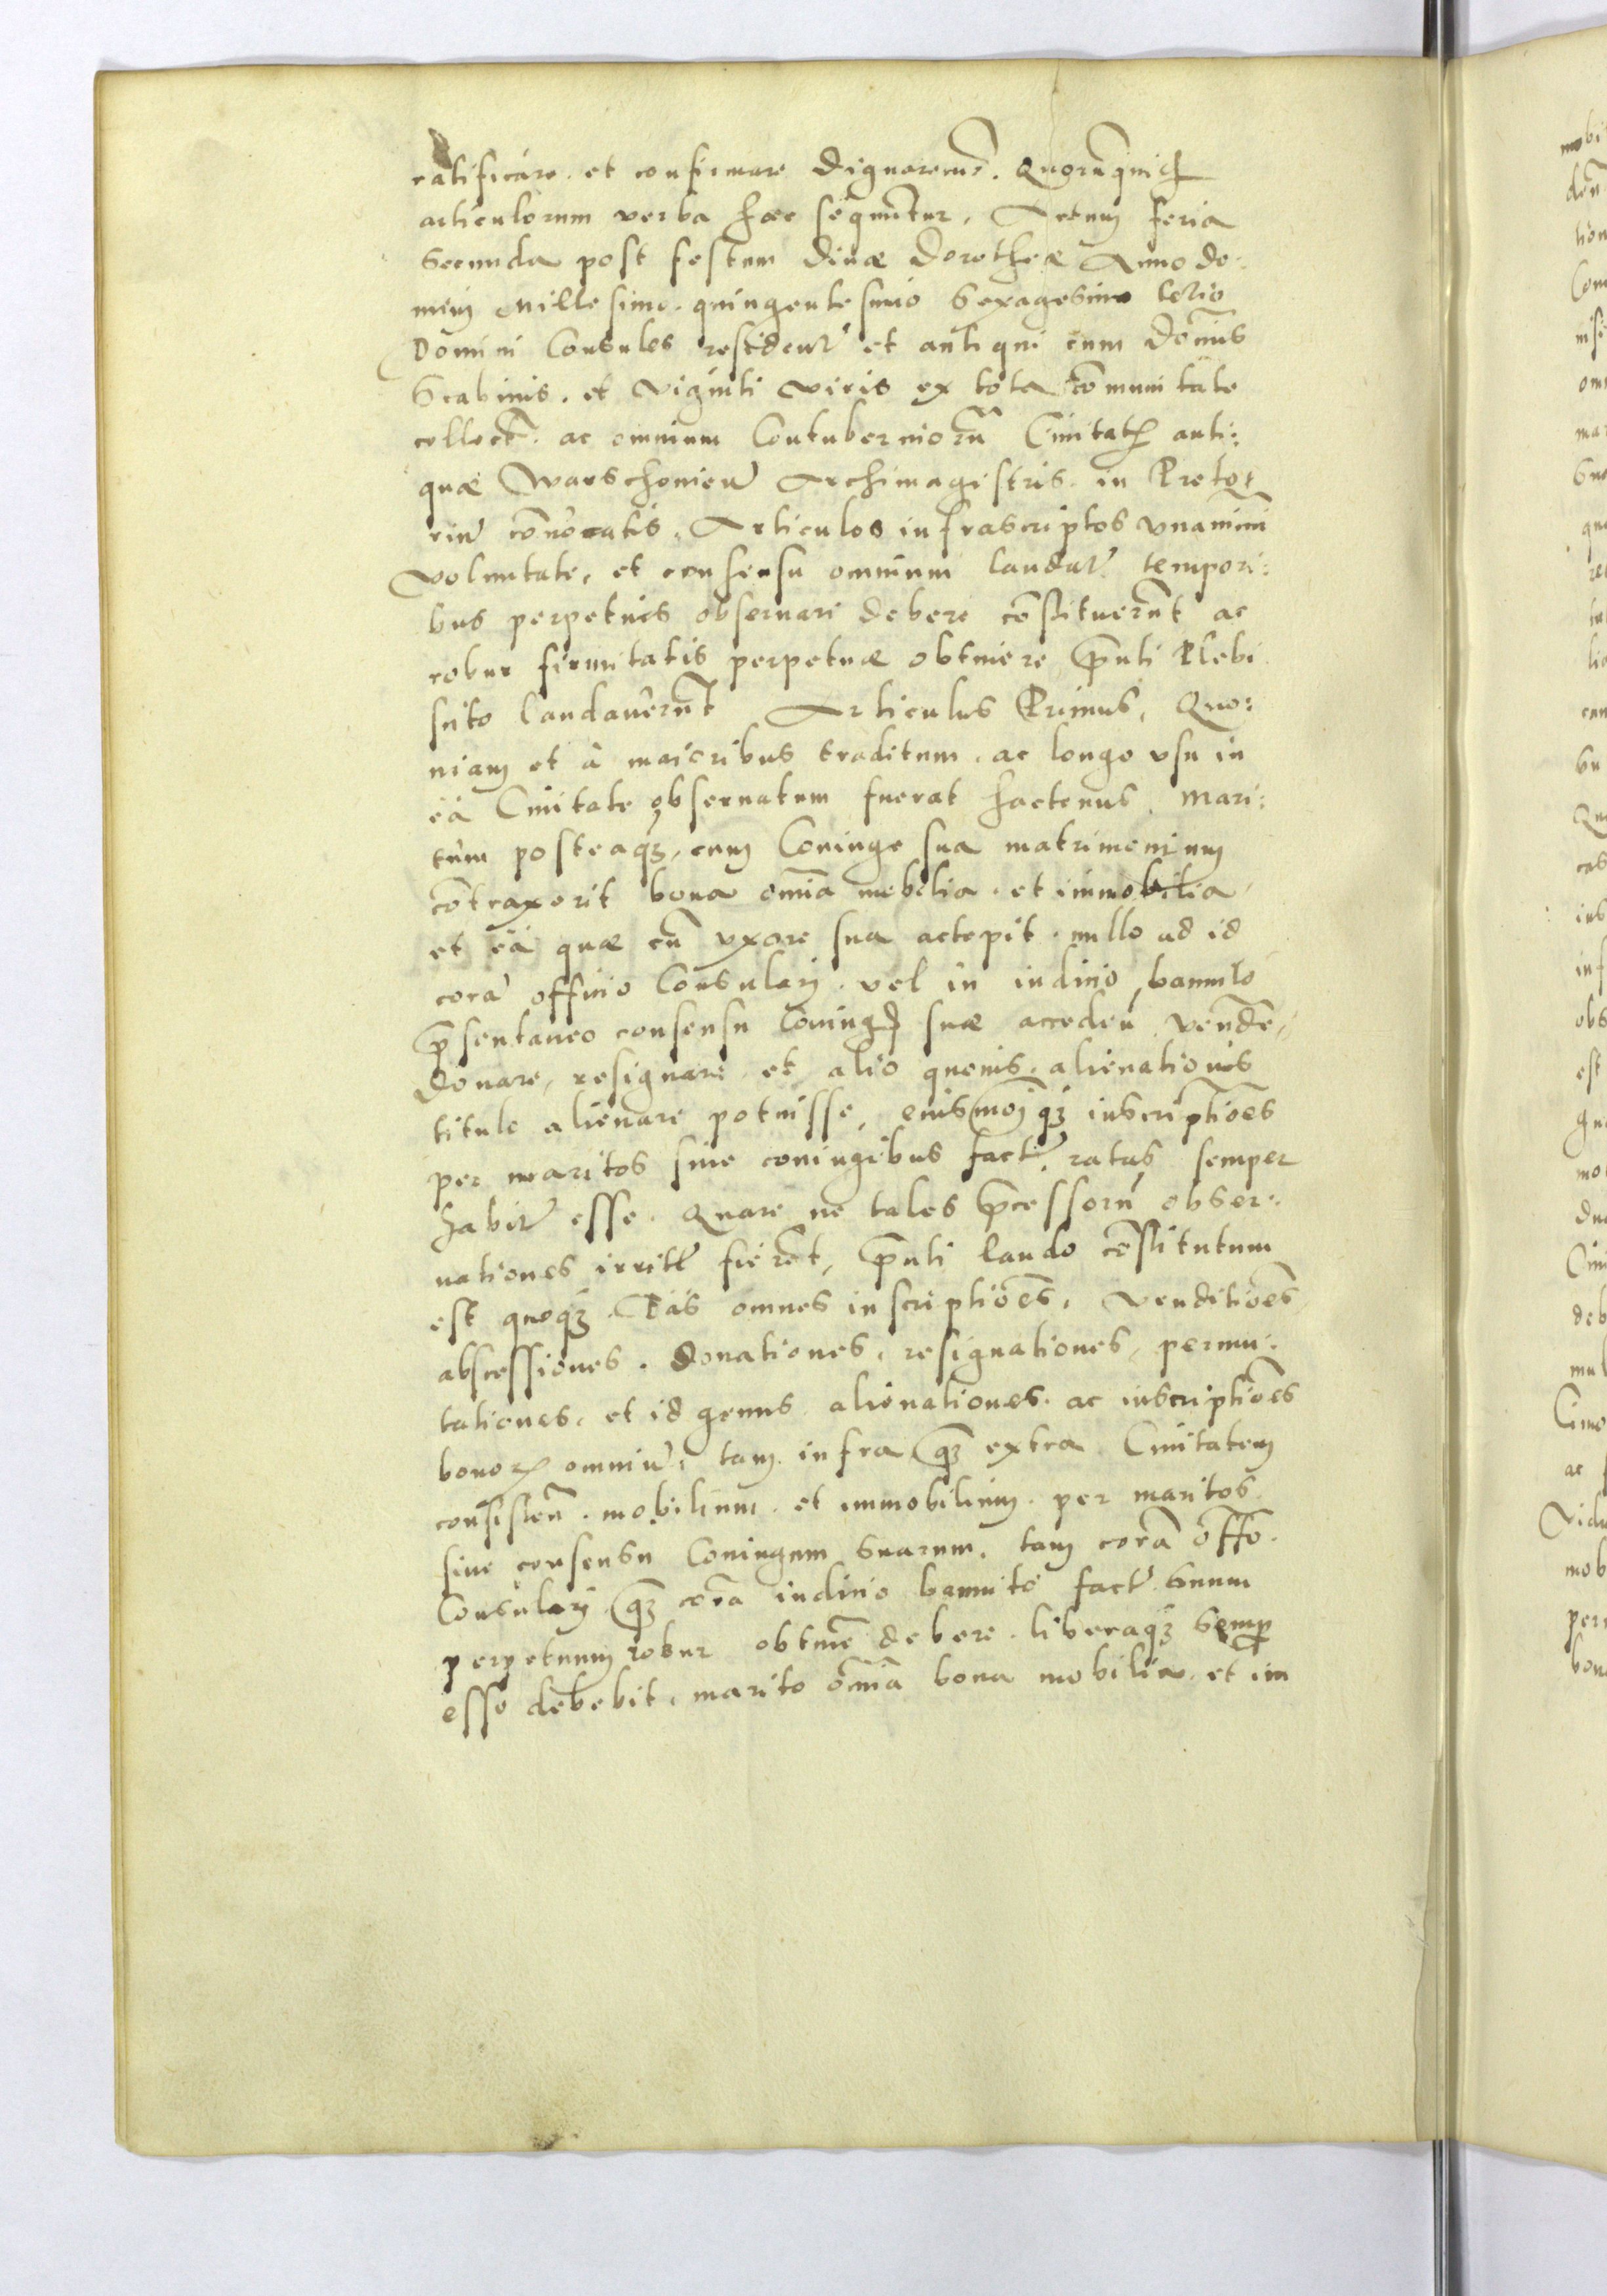 ratificare et confirmare dignaremur. Quorūquid͛
articulorum verba hæc sequūtur. Actum feria
Secunda post festum diuæ Dorotheæ Anno do-
mini Millesimo quingentesimo Sexagesimo tertio
Domini Consules residentes et antiqui cum Dominis
Scabinis. et viginti viris ex tota cōmunitate
collectis. ac omnium Contuberniorū Ciuitatis anti:
quæ Warschouien̄ Archimagistris. in Preto-
riū cōuocatis. Articulos infrascriptos vnanimi
voluntate, et consensu omnium laudatis tempori:
bus perpetuis obseruari debere cōstituerūt ac
robur firmitatis perpetuæ obtinere p̄nti Plebi
scito laudauerūt Articulus Primus. Quo:
niam et à maioribus traditum. ac longo vsu in
ea Ciuitate obseruatum fuerat hactenus. mari:
tum posteaq̃ȝ cum Coniuge sua matrimonium
cōtraxerit bona om̄ia mobilia. et immobilia
et ea quæ cū vxore sua accepit. nullo ad id
corā officio Consulari. vel in iudicio bannito
p̄sentaneo consensu Coniugis suæ acceden̄ vende͛
donare, resignare et alio quouis alienationis
titulo alienare potuisse, eiusmoiq̃ȝ inscriptiōes
per maritos sine coniugibus factas ratas semper
habitas esse. Quare ne tales p̄cessorū obser-
uationes irritæ fierēt, p̄nti laudo cōstitutum
est quoq̃ȝ. Eas omnes inscriptiōes, venditiōes
abscessiones. donationes, resignationes, permu:
tationes, et id genus alienationes. ac inscriptiōes
bonorū omniū, tam infra q̃ȝ extra Ciuitatem
consisten̄. mobilium. et immobilium. per maritos
sine consensu Coniugum suarum. tam corā offō
Consulari q̃ȝ corā iudicio bannito factas suum
perpetuum robur obtinē debere. liberaq̃ȝ semp̱
esse debebit, marito om̄ia bona mobilia. et im